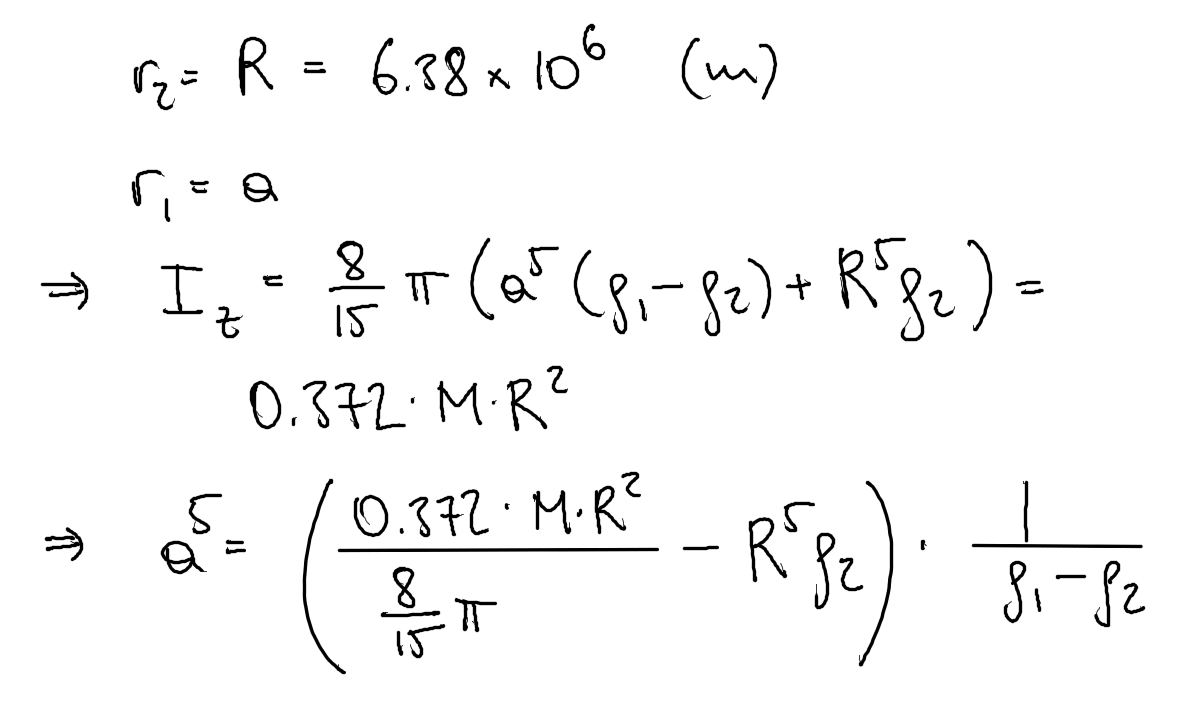 r₂ = R = 6.38 × 10⁶ (m)
r₁ = a
⇒ I_z = 8/15 π (a⁵ (ρ₁ − ρ₂) + R⁵ρ₂) =
0.372 · M · R²
⇒ a⁵ = ( (0.372 · M · R²) / (8/15 π) − R⁵ρ₂ ) · 1/(ρ₁ − ρ₂)